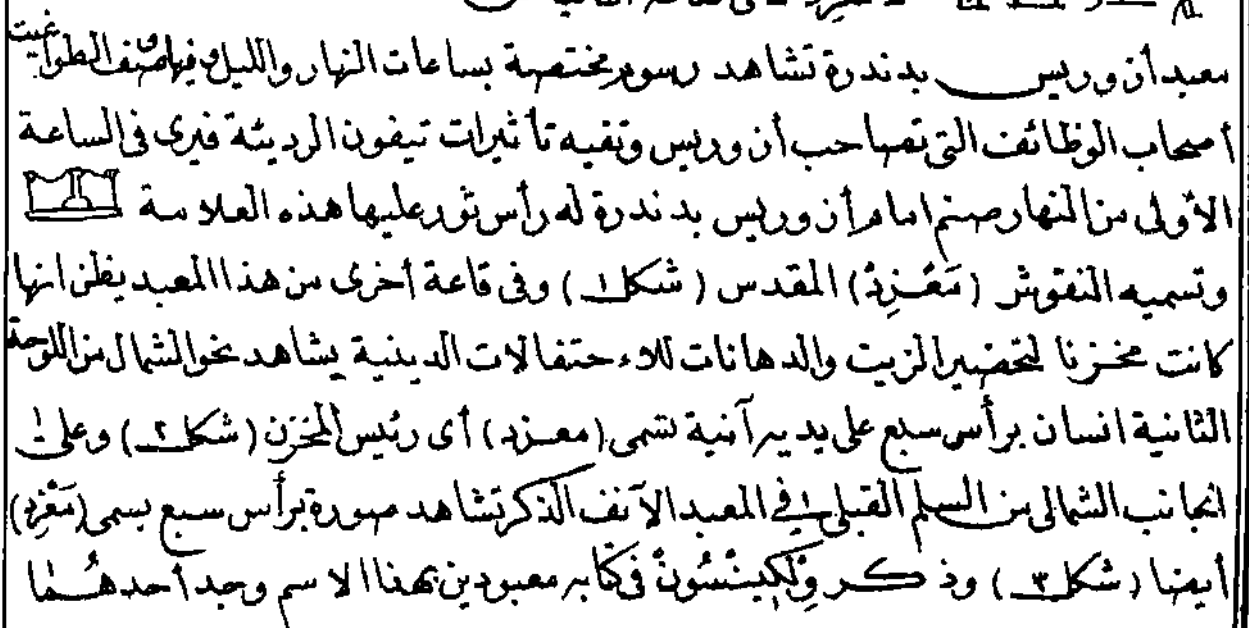 معبد أن وريس بدندرة تشاهد رسوم مختصة بساعات النهار والليل وفيها صنف الطواغيت
أصحاب الوظائف التى تصاحب أن وريس وتقيه تأثيرات تيفون الرديئة فيرى فى الساعة
الأولى من النهار صنم امام أن وريس بدندرة له رأس ثور عليها هذه العلامة
وتسميه النقوش (مَعْزِدْ) المقدس (شكل ١) وفى قاعة أخرى من هذا المعبد يظن انها
كانت مخزنا لتحضير الزيت والدهانات للاءحتفالات الدينية يشاهد نحو الشمال من اللوحة
الثانية انسان برأس سبع على يديه آنية تسمى (معزد) أى رئيس المخزن (شكل ٢) وعلى
الجانب الشمالى من السلم القبلى فى المعبد الآنف الذكر تشاهد صورة برأس سبع يسمى (مَعْزِد)
أيضا (شكل ٣) وذكر وِلْكِينْسُونْ فى كتابه معبودين بهذا الاسم وجد أحدهما